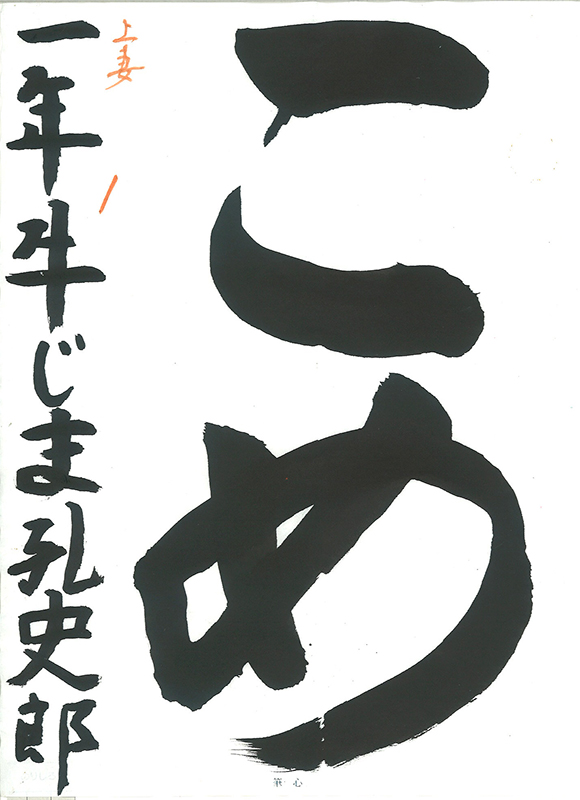 こめ
上妻
一年 牛じま孔史郎
筆心